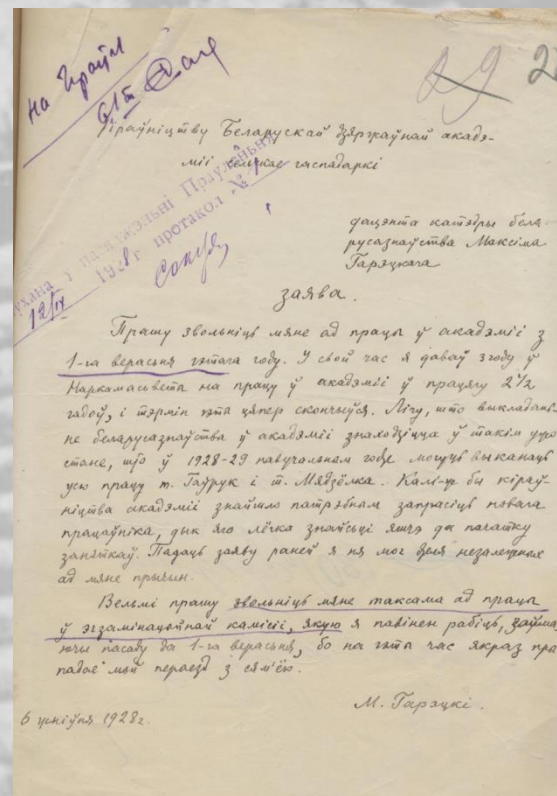 на Праўл
29
Кіраўніцтву Беларускай дзяржаўнай акадэ-
міі сельскае гаспадаркі
пасяджэньні Праўленьня
1928 г. протакол №
12/IX
дацэнта катэдры бела-
русазнаўства Максіма
Гарэцкага
заява.
Прашу звольніць мяне ад працы ў акадэміі з
1-га верасьня гэтага году. У свой час я даваў згоду ў
Наркамасьвета на працу ў акадэміі ў працягу 2½
гадоў, і тэрмін гэты цяпер скончыўся. Лічу, што выкладань-
не беларусазнаўства ў акадэміі знаходзіцца ў такім ужо
стане, што ў 1928-29 навучальным годзе могуць выканаць
усю працу т. Гаўрук і т. Мядзёлка. Калі-ж бы кіраў-
ніцтва акадэміі знайшло патрэбным запрасіць новага
працаўніка, дык яго лёгка знайсьці яшчэ да пачатку
заняткаў. Падаць заяву раней я ня мог дзеля незалежных
ад мяне прычын.
Вельмі прашу звольніць мяне таксама ад працы
ў экзамінацыйнай камісіі, якую я павінен рабіць, займа-
ючы пасаду да 1-га верасьня, бо на гэты час якраз пры-
падае мой пераезд з сям'ёю.
М. Гарэцкі.
6 жніўня 1928 г.